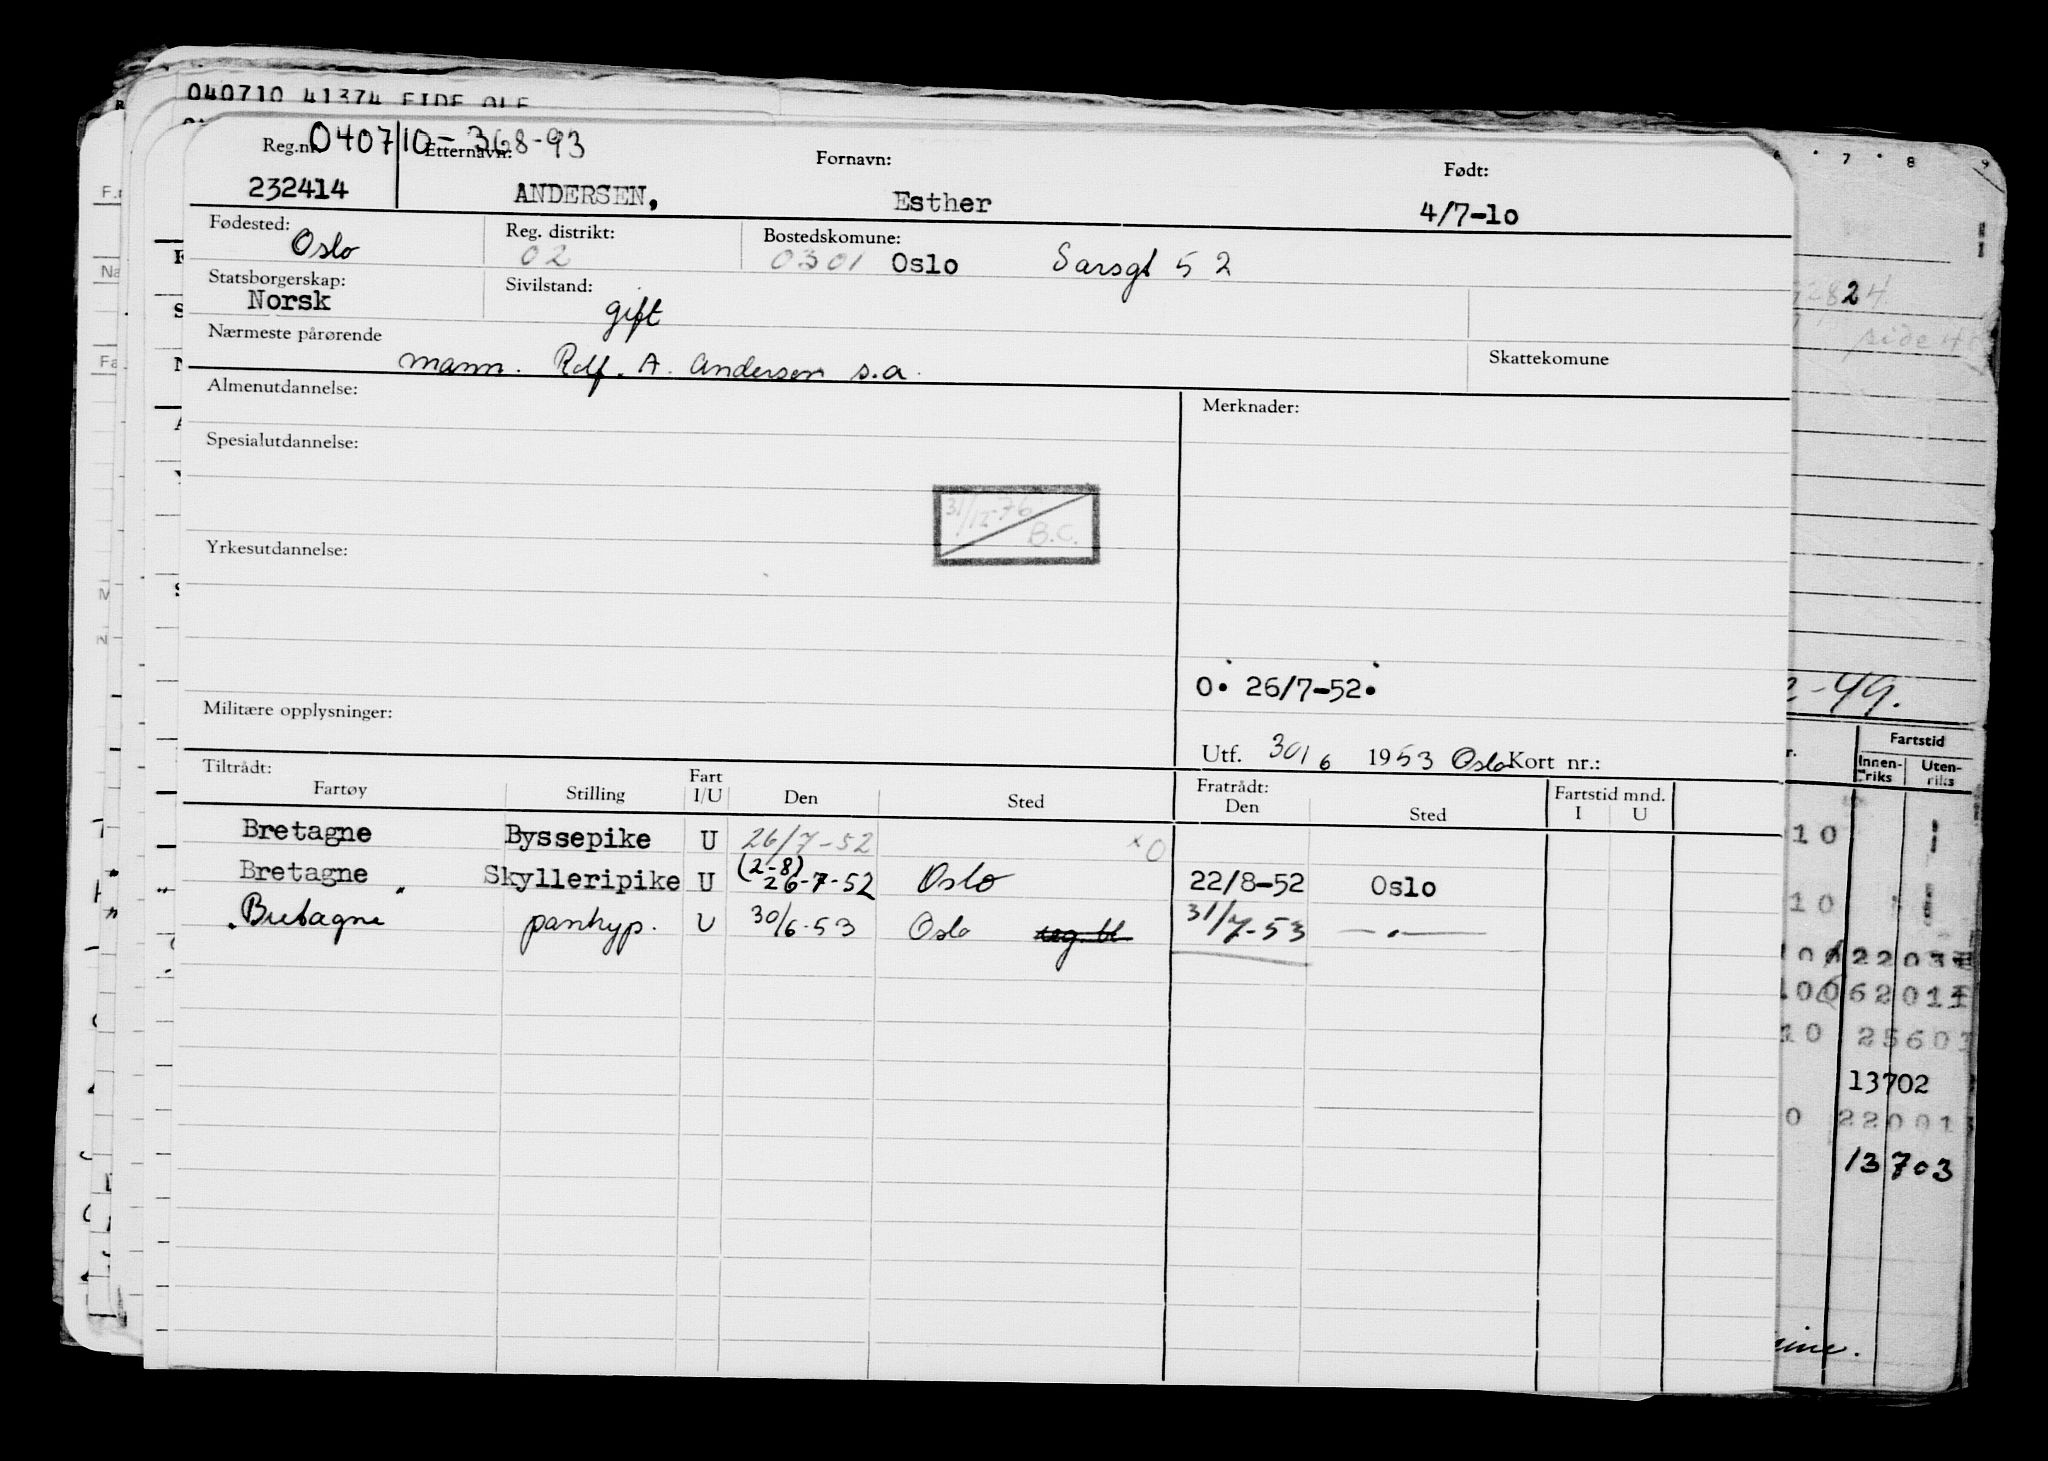 040710 41374 EIDE OLE
040710-368-93
Reg.nr. Etternavn: Fornavn: Født:
232414 ANDERSEN, Esther 4/7-10
Fødested: Reg. distrikt: Bostedskomune:
Oslo 02 0301 Oslo Sarsgt 52
Statsborgerskap: Sivilstand:
Norsk gift
Nærmeste pårørende Skattekomune
mann. Rolf. A. Andersen s.a.
Almenutdannelse: Merknader:
Spesialutdannelse:
31/12-76 B.C.
Yrkesutdannelse:
O. 26/7-52.
Militære opplysninger:
Utf. 30/6 1953 Oslo Kort nr.:
Tiltrådt: Fratrådt:
Fartøy Stilling Fart I/U Den Sted Den Sted Fartstid mnd. I U
Bretagne Byssepike U 26/7-52 x0
Bretagne Skylleripike U (2-8) 26-7-52 Oslo 22/8-52 Oslo
"Bretagne" pantryp. U 30/6-53 Oslo reg. bl 31/7-53 —"—
7 8 9
2824
side 4
-49.
Fartstid
Innenriks Utenriks
10
10
2203
62011
10 25603
13702
0 22001
13703